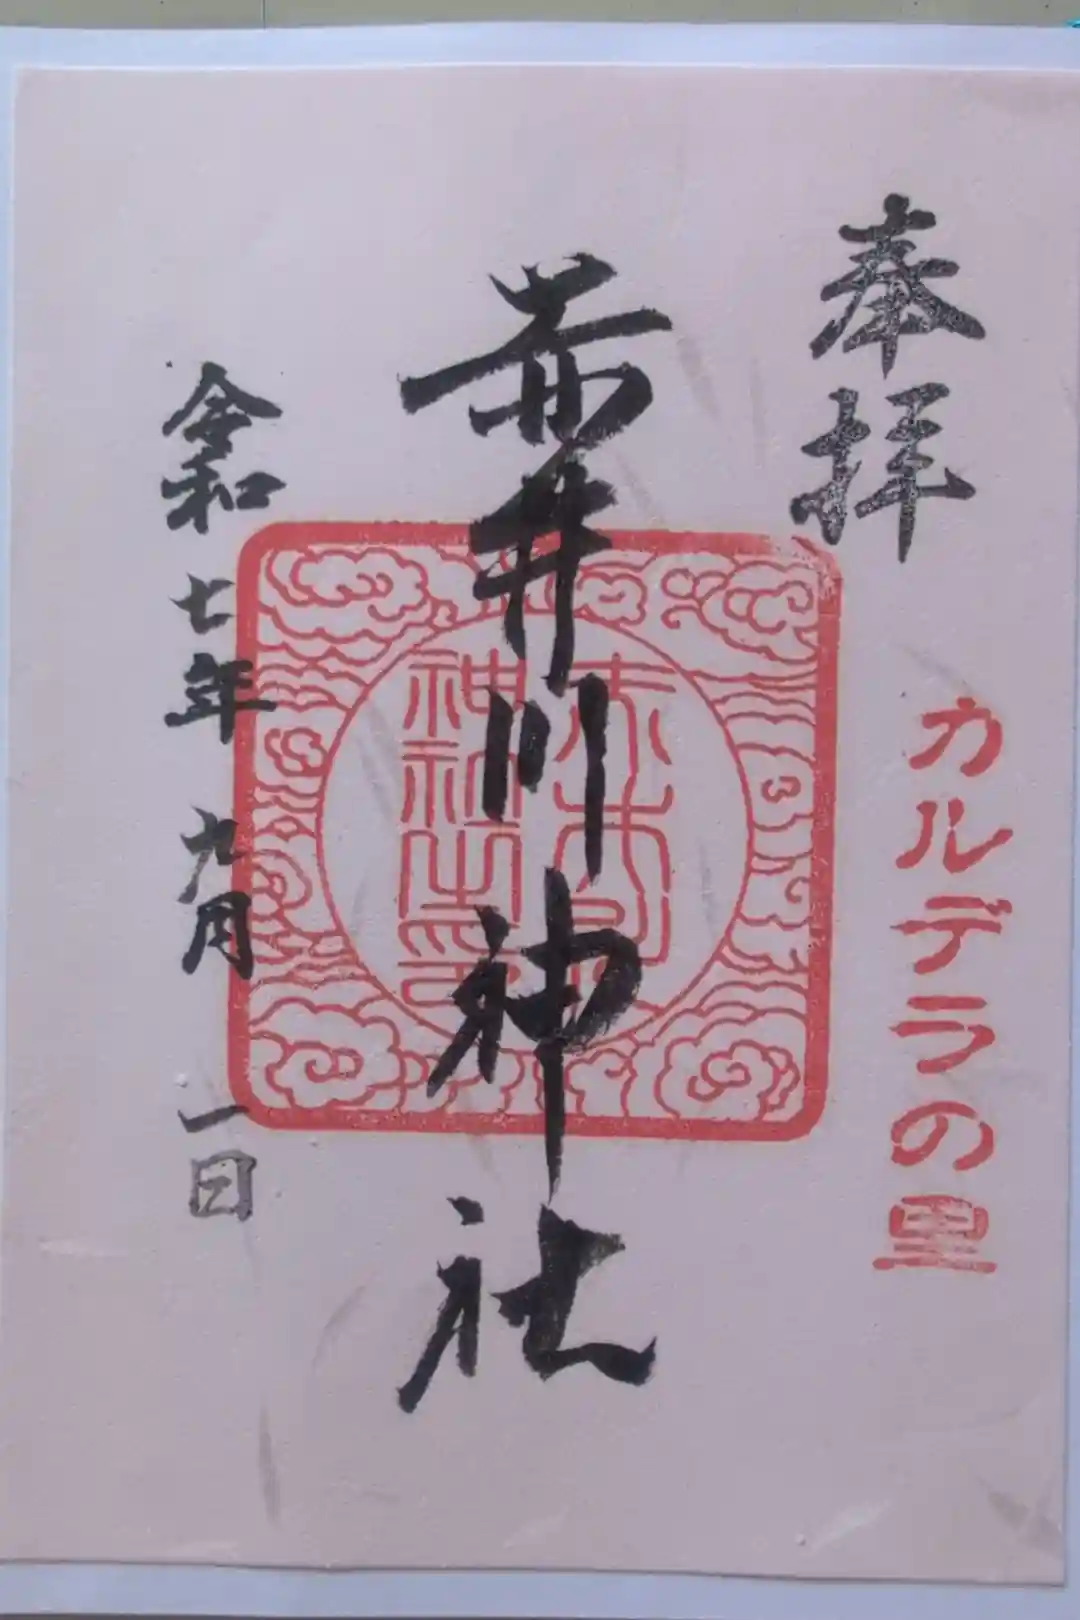 奉拝
カルデラの里
赤井川神社
赤井川
神社之印
令和七年九月一日